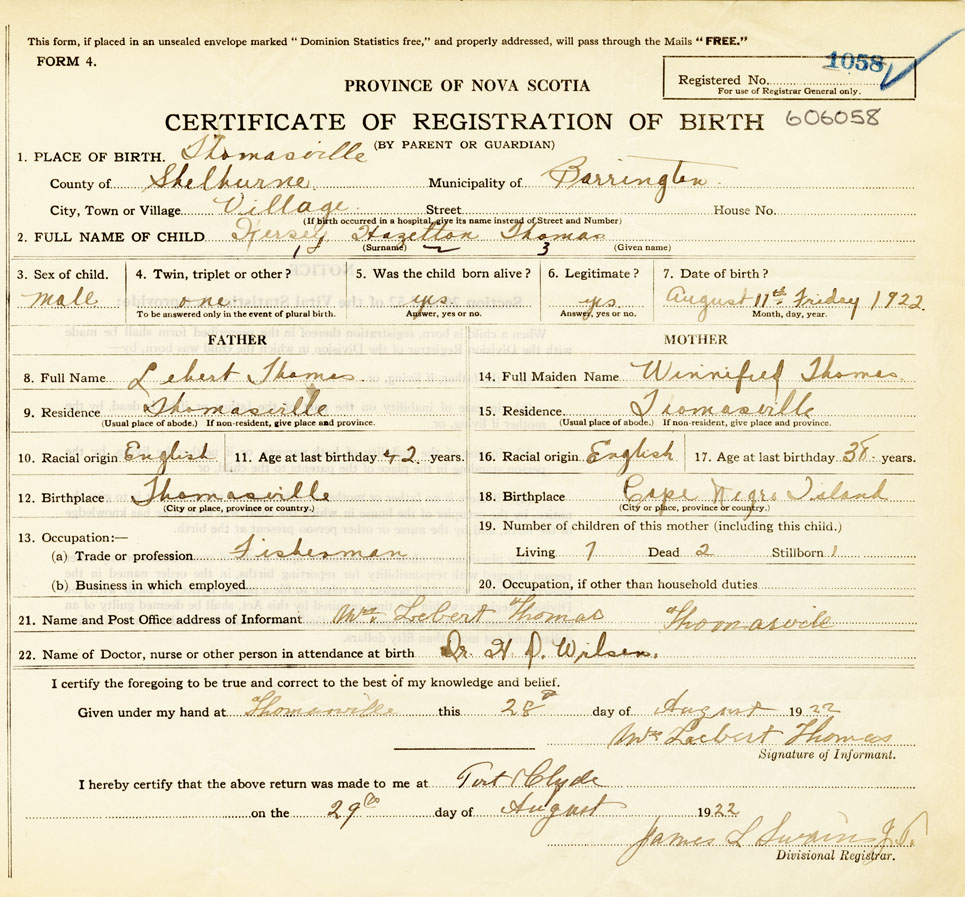 This form, if placed in an unsealed envelope marked "Dominion Statistics free," and properly addressed, will pass through the Mails "FREE."
FORM 4.
1058
Registered No.
For use of Registrar General only.
PROVINCE OF NOVA SCOTIA
CERTIFICATE OF REGISTRATION OF BIRTH 606058
(BY PARENT OR GUARDIAN)
1. PLACE OF BIRTH. Thomasville
County of Shelburne Municipality of Barrington
City, Town or Village Village Street House No.
(If birth occurred in a hospital, give its name instead of Street and Number)
2. FULL NAME OF CHILD Kersey Hazelton Thomas
1 (Surname) 2 3 (Given name)
3. Sex of child. 4. Twin, triplet or other? 5. Was the child born alive? 6. Legitimate? 7. Date of birth?
male one yes yes August 11th Friday 1922
To be answered only in the event of plural birth. Answer, yes or no. Answer, yes or no. Month, day, year.
FATHER MOTHER
8. Full Name Lebert Thomas 14. Full Maiden Name Winnified Thomas
9. Residence Thomasville 15. Residence Thomasville
(Usual place of abode.) If non-resident, give place and province. (Usual place of abode.) If non-resident, give place and province.
10. Racial origin English 11. Age at last birthday 42 years. 16. Racial origin English 17. Age at last birthday 38 years.
12. Birthplace Thomasville 18. Birthplace Cape Negro Island
(City or place, province or country.) (City or place, province or country.)
13. Occupation:— 19. Number of children of this mother (including this child.)
(a) Trade or profession Fisherman Living 7 Dead 2 Stillborn 1
(b) Business in which employed 20. Occupation, if other than household duties
21. Name and Post Office address of Informant Mrs. Lebert Thomas Thomasvile
22. Name of Doctor, nurse or other person in attendance at birth Dr. H D. Wilson.
I certify the foregoing to be true and correct to the best of my knowledge and belief.
Given under my hand at Thomasville this 28th day of August 1922
Mrs Lebert Thomas
Signature of Informant.
I hereby certify that the above return was made to me at Port Clyde
on the 29th day of August 1922
James L Swain J.P.
Divisional Registrar.